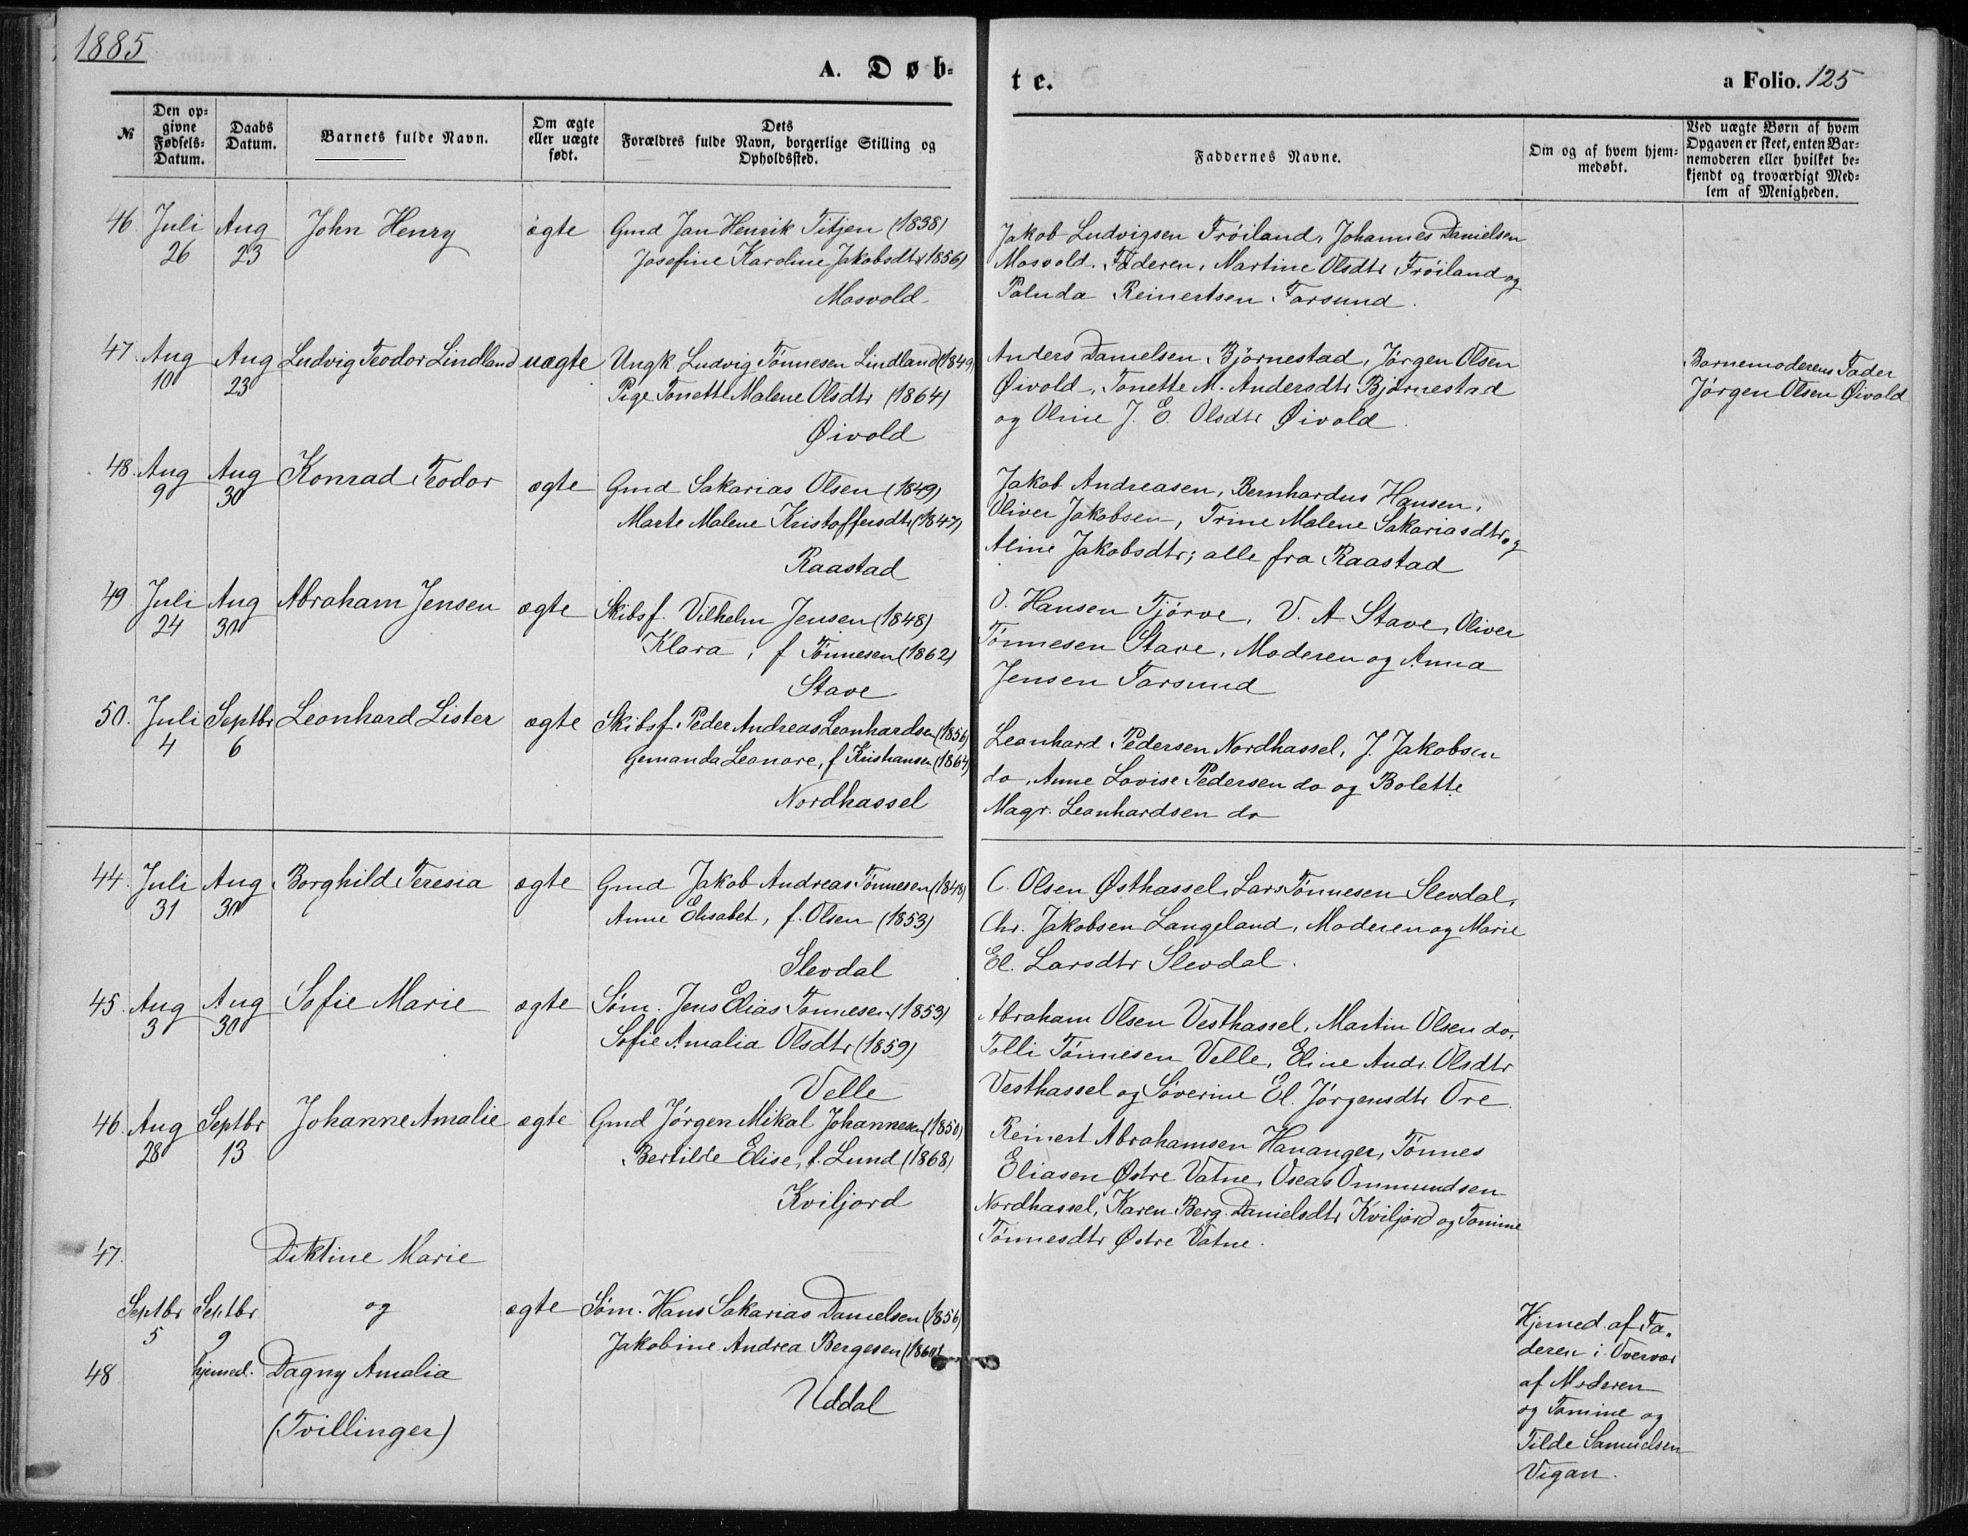 1885
A. Døb-
te.
a Folio. 125
№
Den op-
givne
Fødsels-
Datum.
Daabs
Datum.
Barnets fulde Navn.
Om ægte
eller uægte
født.
Dets
Forældres fulde Navn, borgerlige Stilling og
Opholdssted.
Faddernes Navne.
Om og af hvem hjem-
medøbt.
Ved uægte Børn af hvem
Opgaven er skeet, enten Bar-
nemoderen eller hvilket be-
kjendt og troværdigt Med-
lem af Menigheden.
46 Juli Aug John Henry ægte Gmd Jan Henrik Titjen (1838)
26 23 Josefine Karoline Jakobsdtr (1856)
Mosvold
Jakob Ludvigsen Frøiland, Johannes Danielsen
Mosvold, Faderen, Martine Olsdtr Frøiland og
Paluda Reinertsen Farsund.
47. Aug Aug Ludvig Teodor Lindland uægte Ungk. Ludvig Tønnesen Lindland (1849)
10 23 Pige Tonette Malene Olsdtr (1864)
Øivold
Anders Danielsen Bjørnestad, Jørgen Olsen
Øivold, Tonette M. Andersdtr Bjørnestad
og Oline J. E. Olsdtr Øivold.
Barnemoderens Fader
Jørgen Olsen Øivold
48. Aug Aug Konrad Teodor ægte Gmd Sakarias Olsen (1849)
9 30 Marte Malene Kristoffersdtr (1847)
Raastad
Jakob Andreasen, Bernhardus Hansen,
Oliver Jakobsen, Trine Malene Sakariasdtr og
Aline Jakobsdtr; alle fra Raastad
49 Juli Aug Abraham Jensen ægte Skibsf. Vilhelm Jensen (1848)
24 30 Klara, f Tønnesen (1862)
Stave
O. Hansen Tjørve, V. A. Stave, Oliver
Tønnesen Stave, Moderen og Anna
Jensen Farsund
50. Juli Septbr Leonhard Lister ægte Skibsf. Peder Andreas Leonhardsen (1856)
4 6 Gemanda Leonore, f Kristiansen (1864)
Nordhassel
Leonhard Pedersen Nordhassel, J. Jakobsen
do, Anne Lovise Pedersen do og Bolette
Magr. Leonhardsen do
44. Juli Aug Borghild Teresia ægte Gmd Jakob Andreas Tønnesen (1848)
31 30 Anne Elisabet, f. Olsen (1853)
Slevdal
C. Olsen Østhassel, Lars Tønnesen Slevdal,
Chr. Jakobsen Langeland, Moderen og Marie
El. Larsdtr Slevdal.
45. Aug Aug Sofie Marie ægte Søm. Jens Elias Tønnesen (1853)
3 30 Sofie Amalia Olsdtr (1859)
Velle
Abraham Olsen Vesthassel, Martin Olsen do,
Tolli Tønnesen Velle, Eline Andr. Olsdtr
Vesthassel og Søverine El. Jørgensdtr Ore.
46. Aug Septbr Johanne Amalie ægte Gmd Jørgen Mikal Johannesen (1850)
28 13 Bertilde Elise, f. Lund (1868)
Kviljord
Reinert Abrahamsen Hananger, Tønnes
Eliasen Østre Vatne, Oseas Ommundsen
Nordhassel, Karen Berg. Danielsdtr Kviljord og Tomine
Tønnesdtr Østre Vatne.
47. Diktine Marie
Septbr Septbr og ægte Søm. Hans Sakarias Danielsen (1856)
5 9 Jakobine Andrea Bergesen (1860)
48 hjemmed. Dagny Amalia
Uddal
(Tvillinger)
Hjemmed. af Fa-
deren i Overvær
af Moderen
og Tomine og
Tilde Samuelsen
Vigan.